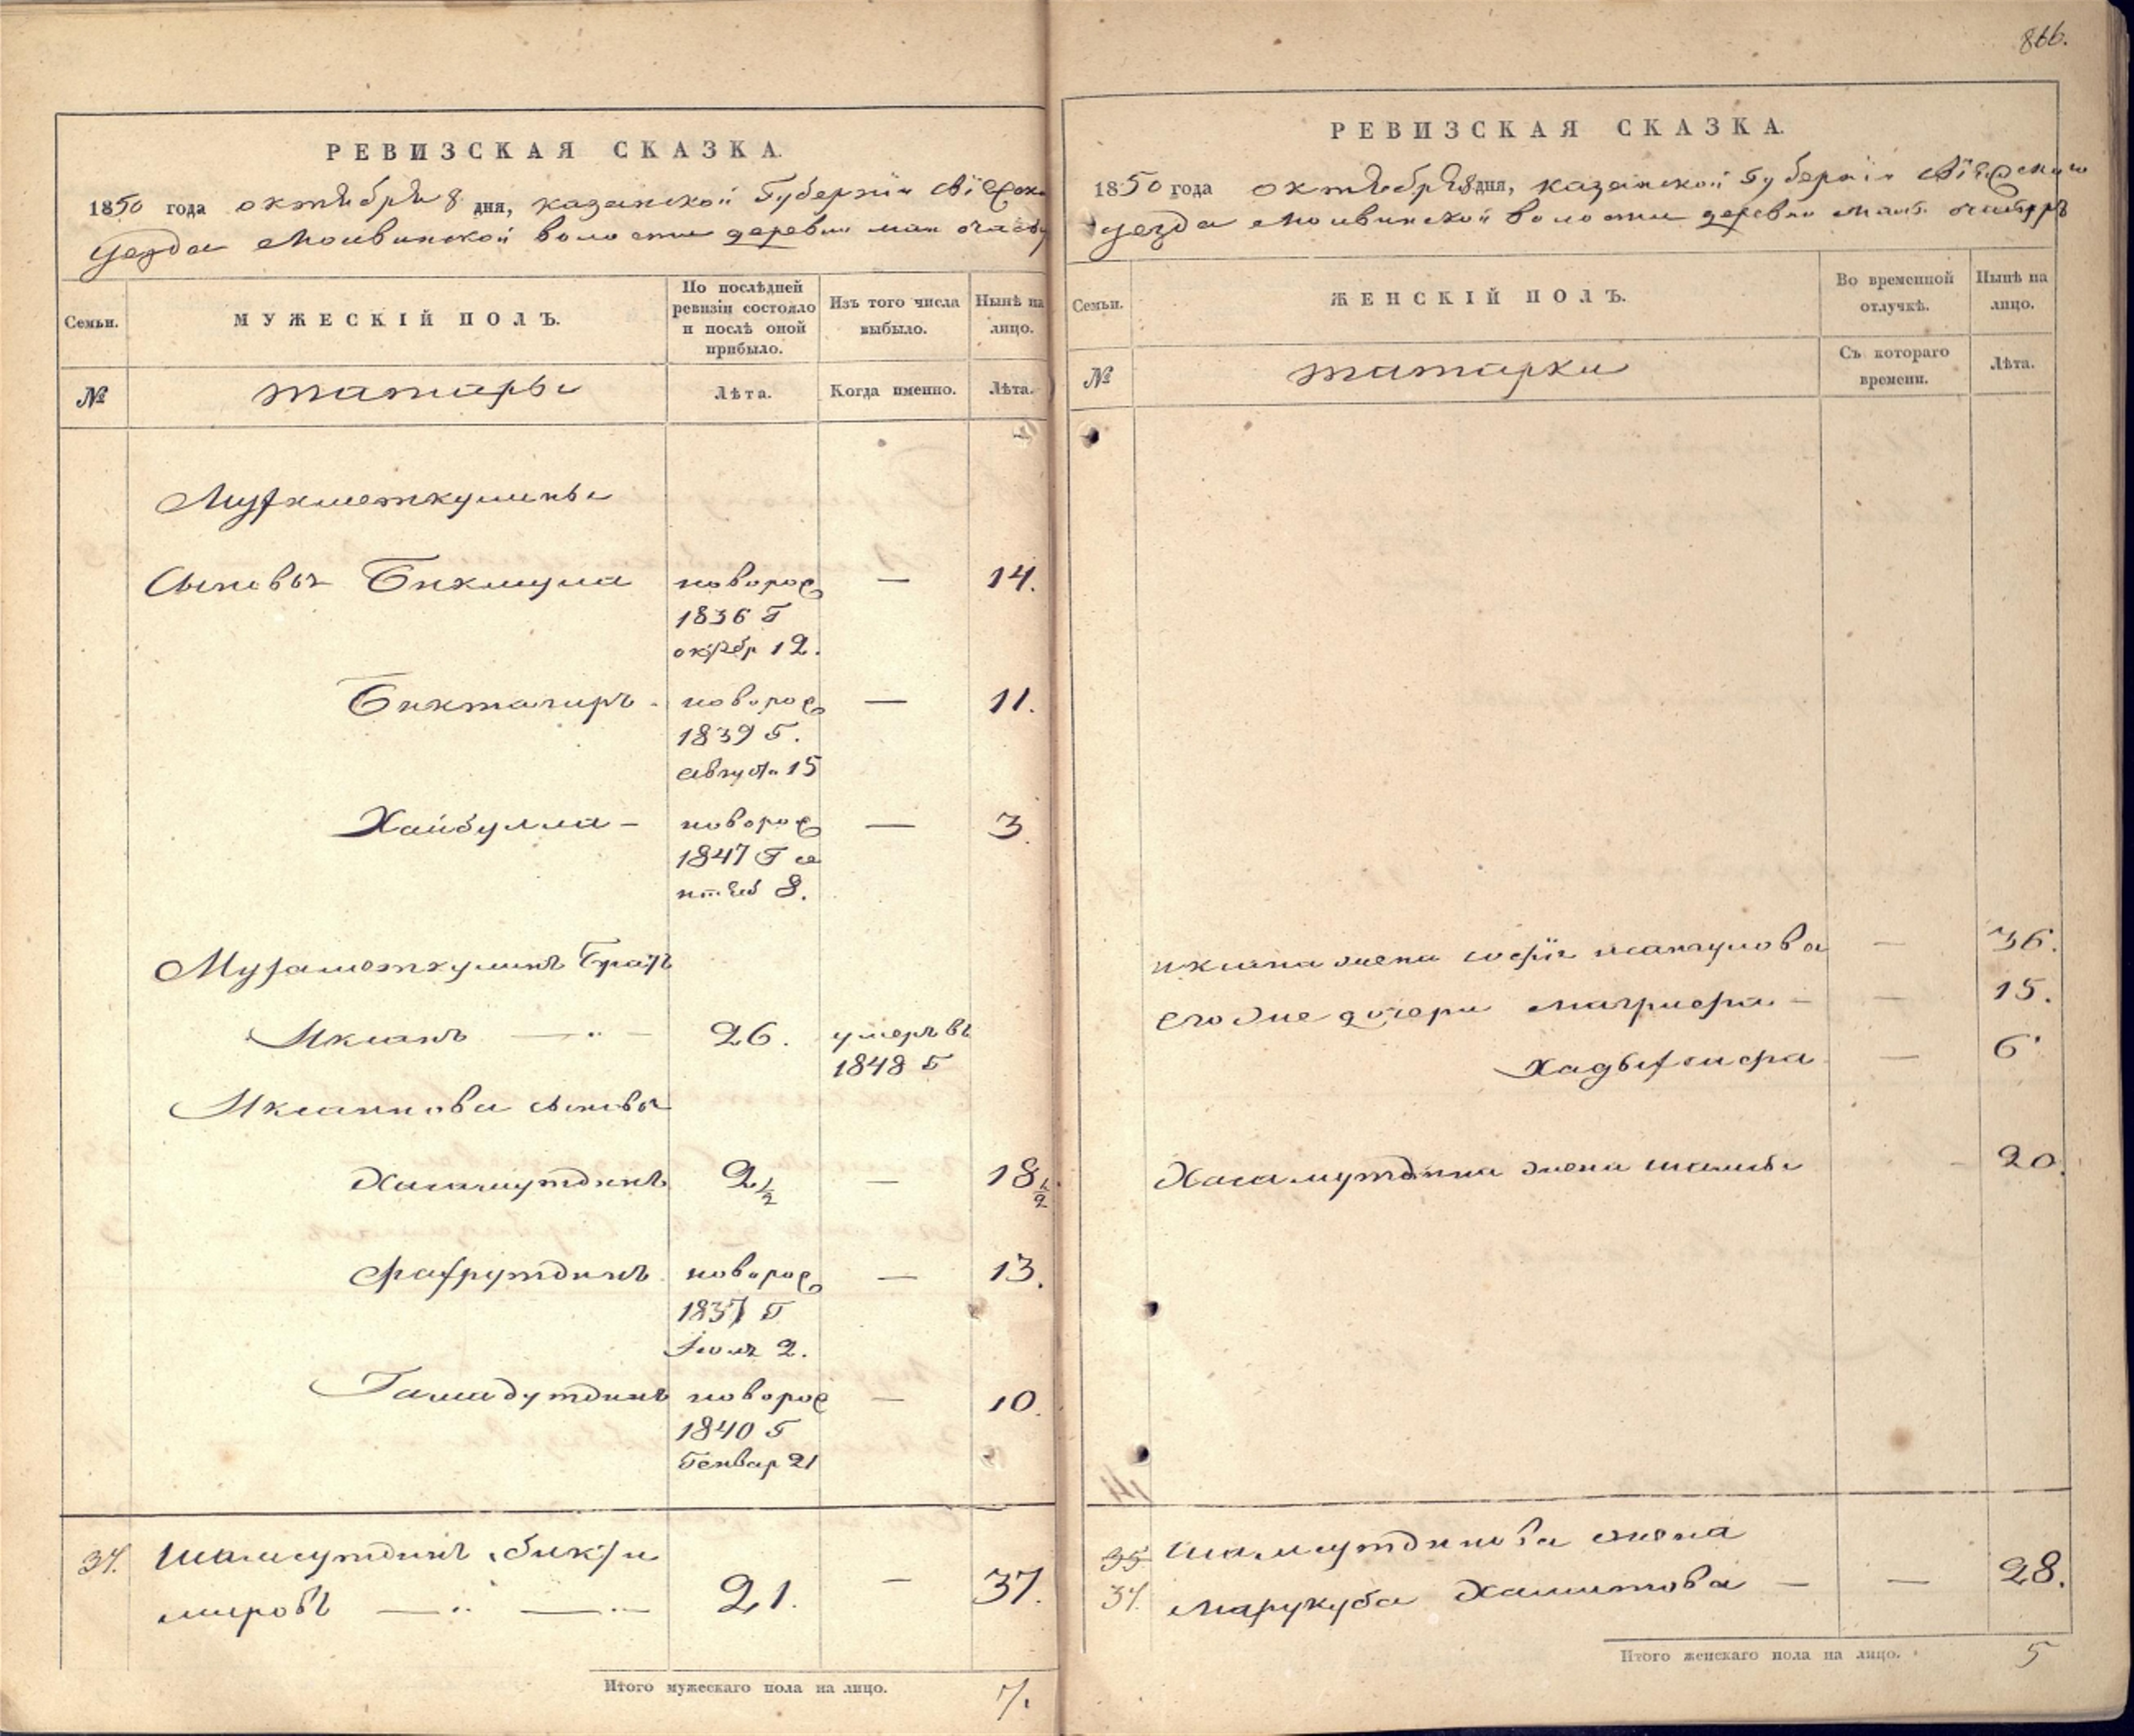 РЕВИЗСКАЯ СКАЗКА.
1850 года октября 8 дня, казанской Губернии Свіяжска
уезда Моивинской волости деревни мал
Семьи.
МУЖЕСКІЙ ПОЛЪ.
По послѣдней ревизіи состояло и послѣ оной прибыло.
Изъ того числа выбыло.
Нынѣ на лицо.
№
татары
Лѣта.
Когда именно.
Лѣта.
Мухаметкулины
Сыновья Бикмула новорож — 14.
1836 Г
октябр 12.
Биктагиръ новорож — 11.
1839 Г.
августа 15
Хайбулла – новорож — 3
1847 Г се
нтяб 8.
Мухаметкулинъ братъ
Икшанъ 26. умеръ въ
1848 Г
Икшанова сыновья
Хисамутдинъ 2 1/2 — 18 1/2
Фахрутдинъ новорож — 13.
1837 Г
Іюля 2.
Гамадутдинъ новорож — 10.
1840 Г
Генвар 21
37. Шамсутдинъ бикти
мировъ 21. — 37.
Итого мужескаго пола на лицо. 7.
866.
РЕВИЗСКАЯ СКАЗКА.
1850 года октября 8 дня, казанской Губерніи Свіяжскаго
уезда Моивинской волости деревни
Семьи.
ЖЕНСКІЙ ПОЛЪ.
Во временной отлучкѣ.
Нынѣ на лицо.
№
татарки
Съ котораго времени.
Лѣта.
икшана жена — 36.
его же дочери — 15.
— 6
Хисамутдина жена 20.
35
37. Шамсутдинова жена
Хамитова — — 28.
Итого женскаго пола на лицо. 5